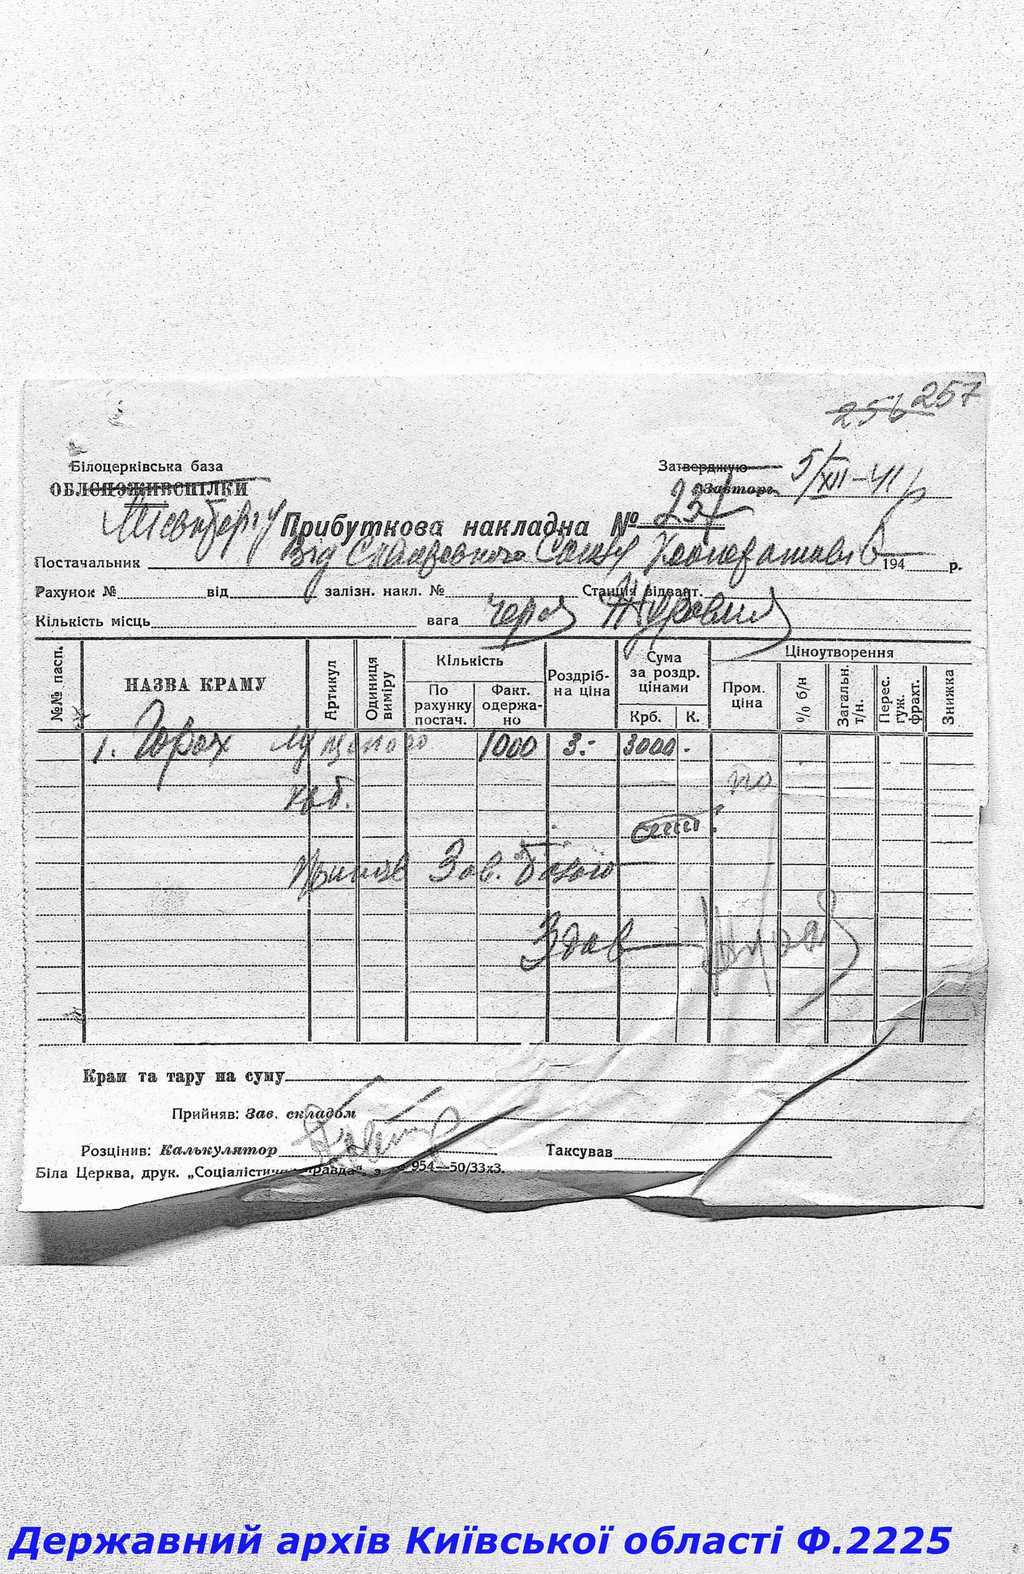 256 257
Білоцерківська база
Затверджую
5/XII-41
ОБЛСПОЖИВСПІЛКИ
Завторг.
Прибуткова накладна № 231
Постачальник Від Сквирського Союзу Кооператив 194 р.
Рахунок № від залізн. накл. № Станція відвант.
Кількість місць вага через
№№ пасп.
НАЗВА КРАМУ
Артикул
Одиниця виміру
Кількість
По рахунку постач.
Факт. одержано
Роздрібна ціна
Сума за роздр. цінами
Крб.
К.
Ціноутворення
Пром. ціна
% б/н
Загальн. т/н.
Перес. гуж. фрахт.
Знижка
1. Горох 1000 3.- 3000.-
Прийняв Зав. базою
Здав
Крам та тару на суму
Прийняв: Зав. складом
Розцінив: Калькулятор Таксував
Біла Церква, друк. „Соціалістична правда“, з. № 954—50/33х3.
Державний архів Київської області Ф.2225